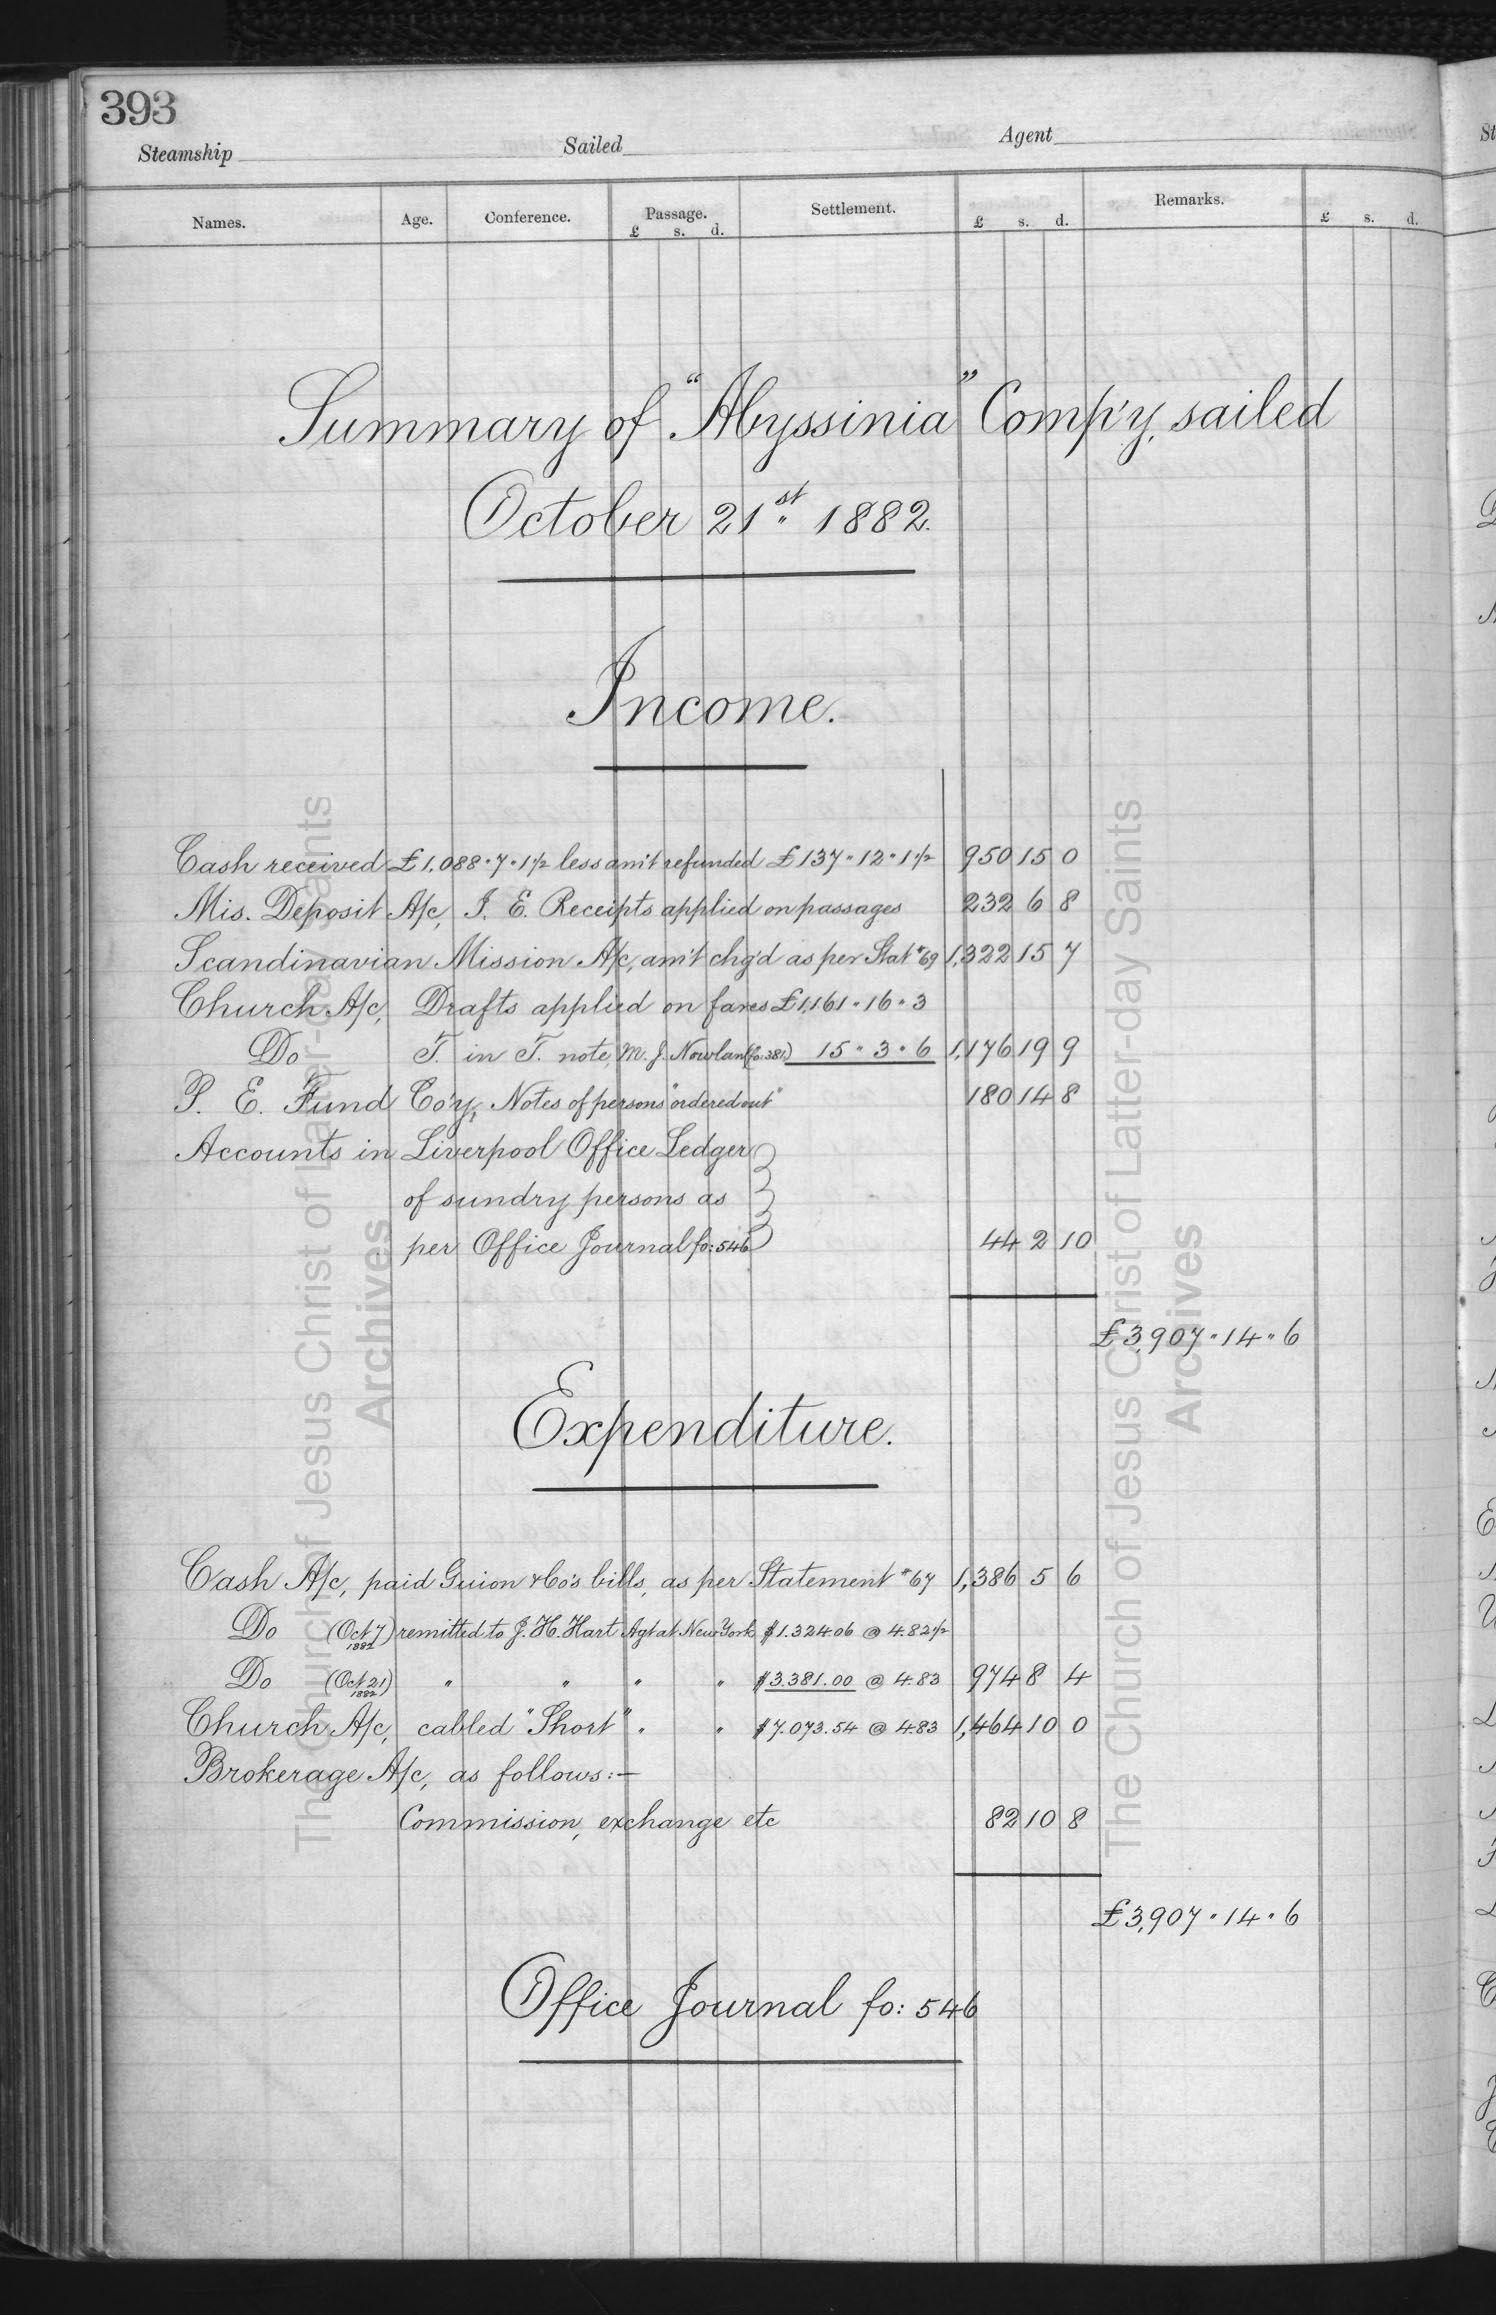 393
Steamship Sailed Agent
Names. Age. Conference. Passage. £ s. d. Settlement. £ s. d. Remarks. £ s. d.
Summary of "Abyssinia" Comp'y, sailed
October 21st 1882.
Income.
Cash received £1,088 " 7 " 1½ less am't refunded £137 " 12 " 1½ 950 15 0
Mis. Deposit A/c, I. E. Receipts applied on passages 232 6 8
Scandinavian Mission A/c, am't chg'd as per Stat #69 1,322 15 7
Church A/c, Drafts applied on fares £1,161 " 16 " 3
Do T. in T. note, M. J. Nowlan (fo: 381) 15 " 3 " 6 1,176 19 9
P. E. Fund Co'y, Notes of persons "ordered out" 180 14 8
Accounts in Liverpool Office Ledger
of sundry persons as
per Office Journal fo: 546 44 2 10
£3,907 " 14 " 6
Expenditure.
Cash A/c, paid Guion & Co's bills, as per Statement #67 1,386 5 6
Do (Oct 7 1882) remitted to J. H. Hart Agt at New York $1.324.06 @ 4.82½
Do (Oct 21 1882) " " " " $3.381.00 @ 4.83 974 8 4
Church A/c, cabled "Short" " " $7.073.54 @ 4.83 1,464 10 0
Brokerage A/c, as follows:—
Commission, exchange etc 82 10 8
£3,907 " 14 " 6
Office Journal fo: 546
The Church of Jesus Christ of Latter-day Saints
Archives
The Church of Jesus Christ of Latter-day Saints
Archives